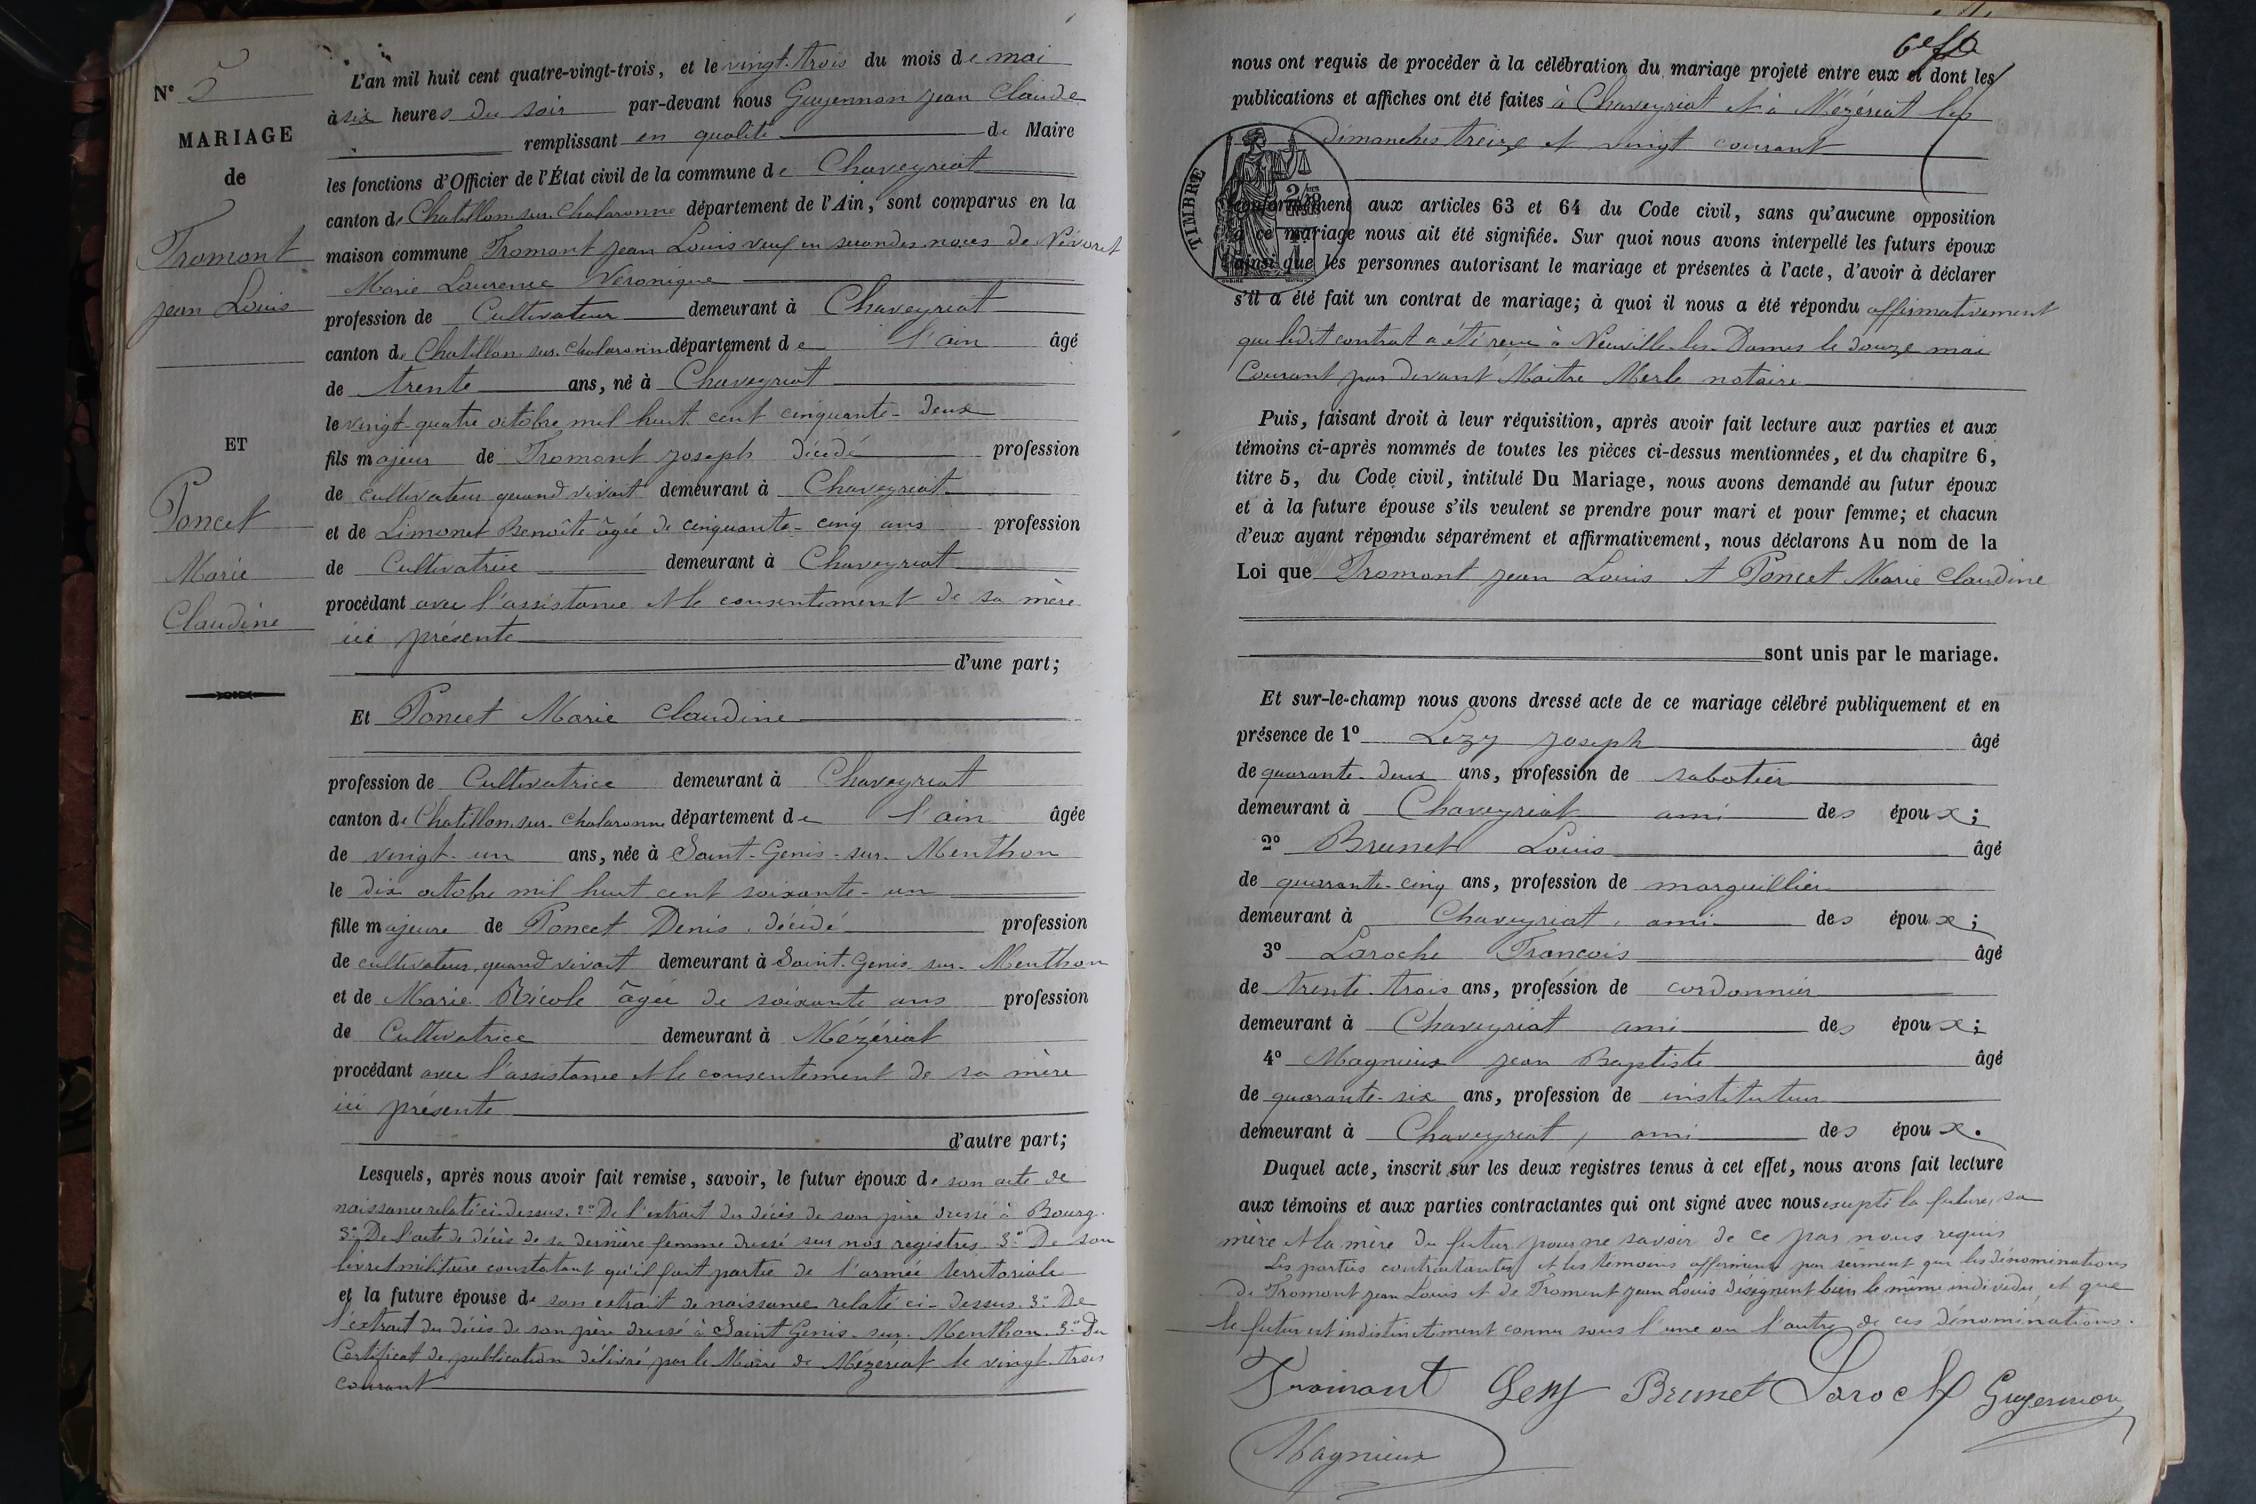 N° 5
MARIAGE
de
Fromont
Jean Louis
ET
Poncet
Marie
Claudine
L'an mil huit cent quatre-vingt-trois, et le vingt-trois du mois de mai
à six heures du soir par-devant nous Guyennon Jean Claude
remplissant en qualité de Maire
les fonctions d'Officier de l'État civil de la commune de Chaveyriat
canton de Chatillon-sur-Chalaronne département de l'Ain, sont comparus en la
maison commune Fromont Jean Louis veuf en secondes noces de Névoret
Marie Laurence Véronique
profession de Cultivateur demeurant à Chaveyriat
canton de Chatillon-sur-Chalaronne département de l'ain âgé
de trente ans, né à Chaveyriat
le vingt quatre octobre mil huit cent cinquante-deux
fils majeur de Fromont Joseph décédé profession
de cultivateur quand vivait demeurant à Chaveyriat
et de Limonet Benoîte âgée de cinquante-cinq ans profession
de Cultivatrice demeurant à Chaveyriat
procédant avec l'assistance et le consentement de sa mère
ici présente
d'une part;
Et Poncet Marie Claudine
profession de Cultivatrice demeurant à Chaveyriat
canton de Chatillon-sur-Chalaronne département de l'ain âgée
de vingt-un ans, née à Saint-Genis-sur-Menthon
le dix octobre mil huit cent soixante-un
fille majeure de Poncet Denis, décédé profession
de cultivateur, quand vivait demeurant à Saint-Genis-sur-Menthon
et de Marie Nicole âgée de soixante ans profession
de Cultivatrice demeurant à Mézériat
procédant avec l'assistance et le consentement de sa mère
ici présente
d'autre part;
Lesquels, après nous avoir fait remise, savoir, le futur époux de son acte de
naissance relaté ci-dessus. 2° De l'extrait du décès de son père dressé à Bourg.
3° De l'acte de décès de sa dernière femme dressé sur nos registres. 3° De son
livret militaire constatant qu'il fait partie de l'armée territoriale
et la future épouse de son extrait de naissance relaté ci-dessus. 3° De
l'extrait du décès de son père dressé à Saint Genis-sur-Menthon. 3° Du
Certificat de publication délivré par le Maire de Mézériat le vingt-trois
courant
nous ont requis de procéder à la célébration du mariage projeté entre eux et dont les
publications et affiches ont été faites à Chaveyriat et à Mézériat les
dimanches treize et vingt courant
TIMBRE
conformément aux articles 63 et 64 du Code civil, sans qu'aucune opposition
à ce mariage nous ait été signifiée. Sur quoi nous avons interpellé les futurs époux
ainsi que les personnes autorisant le mariage et présentes à l'acte, d'avoir à déclarer
s'il a été fait un contrat de mariage; à quoi il nous a été répondu affirmativement
que ledit contrat a été reçu à Neuville-les-Dames le douze mai
Courant par devant Maître Merle notaire
Puis, faisant droit à leur réquisition, après avoir fait lecture aux parties et aux
témoins ci-après nommés de toutes les pièces ci-dessus mentionnées, et du chapitre 6,
titre 5, du Code civil, intitulé Du Mariage, nous avons demandé au futur époux
et à la future épouse s'ils veulent se prendre pour mari et pour femme; et chacun
d'eux ayant répondu séparément et affirmativement, nous déclarons Au nom de la
Loi que Fromont Jean Louis et Poncet Marie Claudine
sont unis par le mariage.
Et sur-le-champ nous avons dressé acte de ce mariage célébré publiquement et en
présence de 1° Lezy Joseph âgé
de quarante-deux ans, profession de sabotier
demeurant à Chaveyriat ami des époux;
2° Brunet Louis âgé
de quarante-cinq ans, profession de marguillier
demeurant à Chaveyriat, ami des époux;
3° Laroche François âgé
de trente-trois ans, profession de cordonnier
demeurant à Chaveyriat ami des époux;
4° Magnieux Jean Baptiste âgé
de quarante-six ans, profession de instituteur
demeurant à Chaveyriat, ami des époux.
Duquel acte, inscrit sur les deux registres tenus à cet effet, nous avons fait lecture
aux témoins et aux parties contractantes qui ont signé avec nous excepté la future, sa
mère et la mère du futur pour ne savoir de ce par nous requis
Les parties contractantes et les témoins affirment par serment que les dénominations
de Fromont Jean Louis et de Froment Jean Louis désignent bien le même individu, et que
le futur est indistinctement connu sous l'une ou l'autre de ces dénominations.
Fromont Lezy Brunet Laroch Guyennon
Magnieux